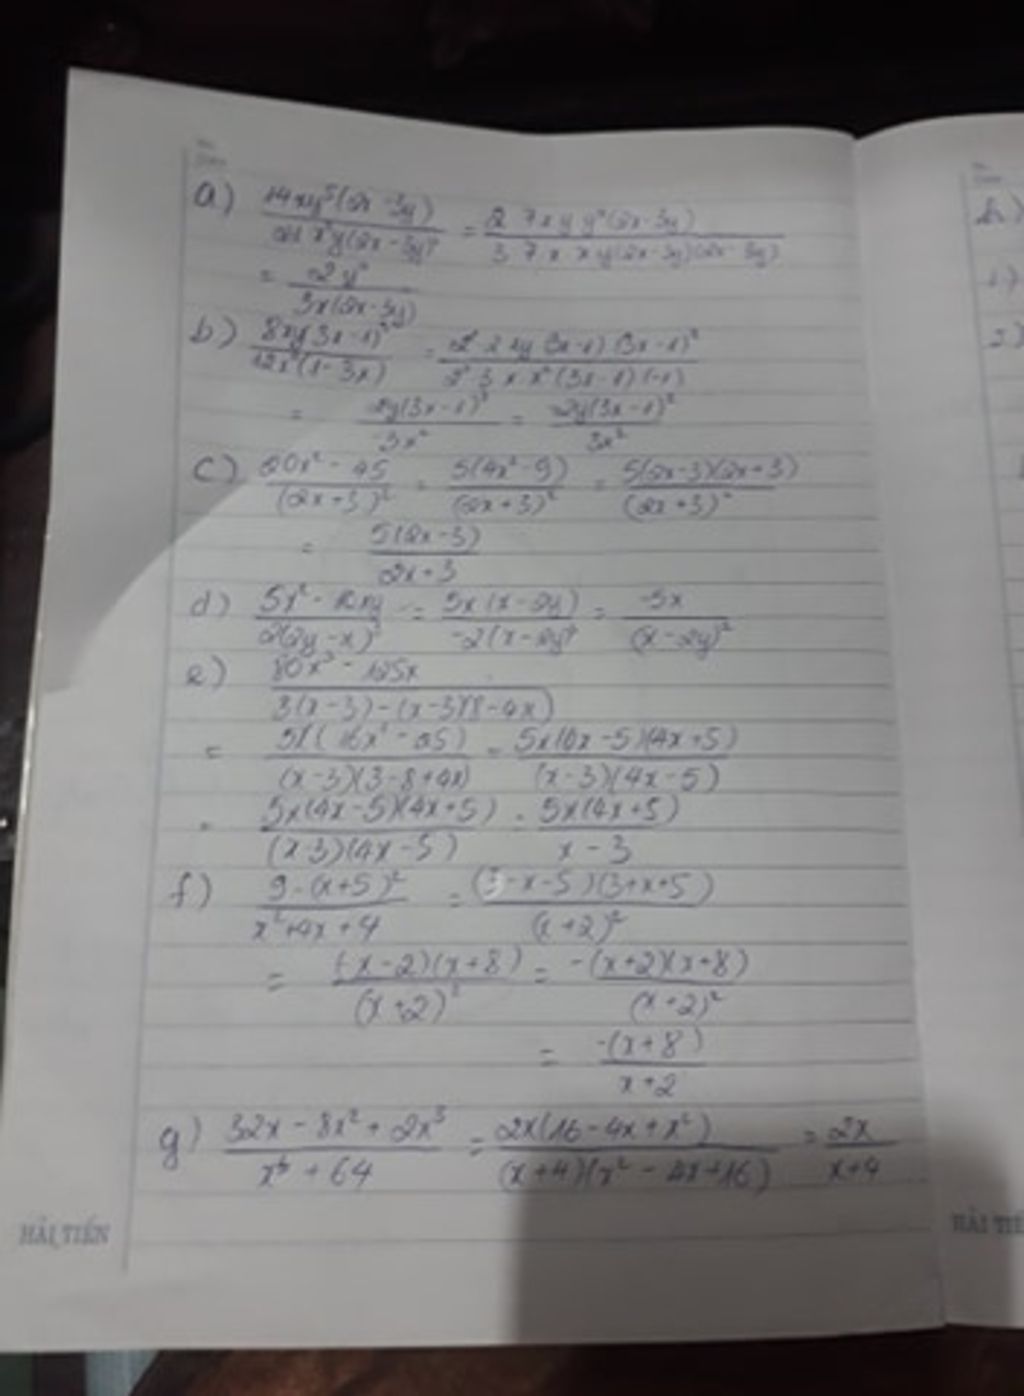 a) 14xy⁵(2x-3y) / 21x²y(2x-3y)² = 2 7xy y⁴(2x-3y) / 3 7x x y(2x-3y)(2x-3y)
= 2y⁴ / 3x(2x-3y)
b) 8xy(3x-1)³ / 12x³(1-3x) = 2² 2xy(3x-1)(3x-1)² / 2² 3 x x²(3x-1)(-1)
= 2y(3x-1)² / -3x² = -2y(3x-1)² / 3x²
c) 20x²-45 / (2x+3)² = 5(4x²-9) / (2x+3)² = 5(2x-3)(2x+3) / (2x+3)²
= 5(2x-3) / 2x+3
d) 5x²-10xy / 2(2y-x)³ = 5x(x-2y) / -2(x-2y)³ = -5x / (x-2y)²
e) 80x³-125x / 3(x-3)-(x-3)(8-4x)
= 5x(16x²-25) / (x-3)(3-8+4x) = 5x(4x-5)(4x+5) / (x-3)(4x-5)
= 5x(4x-5)(4x+5) / (x-3)(4x-5) = 5x(4x+5) / x-3
f) 9-(x+5)² / x²+4x+4 = (3-x-5)(3+x+5) / (x+2)²
= (-x-2)(x+8) / (x+2)² = -(x+2)(x+8) / (x+2)²
= -(x+8) / x+2
g) 32x-8x²+2x³ / x³+64 = 2x(16-4x+x²) / (x+4)(x²-4x+16) = 2x / x+4
HẢI TIẾN
h)